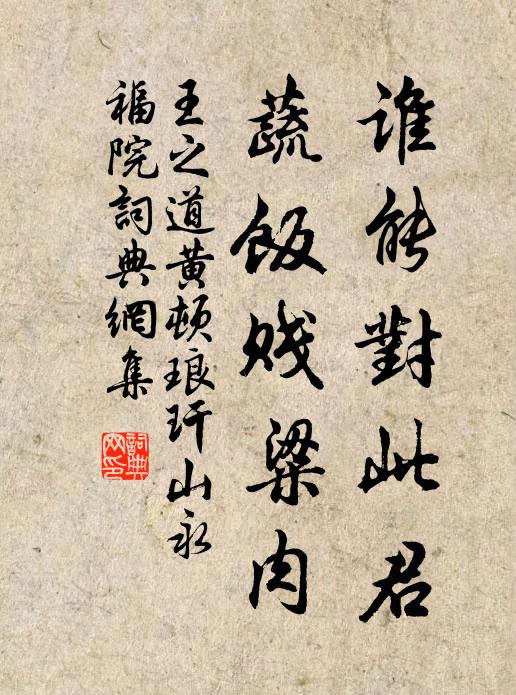 誰能對此君
蔬飯賤粱肉
王之道黃頓琅玕山永
福院詞典網集
詞典网印